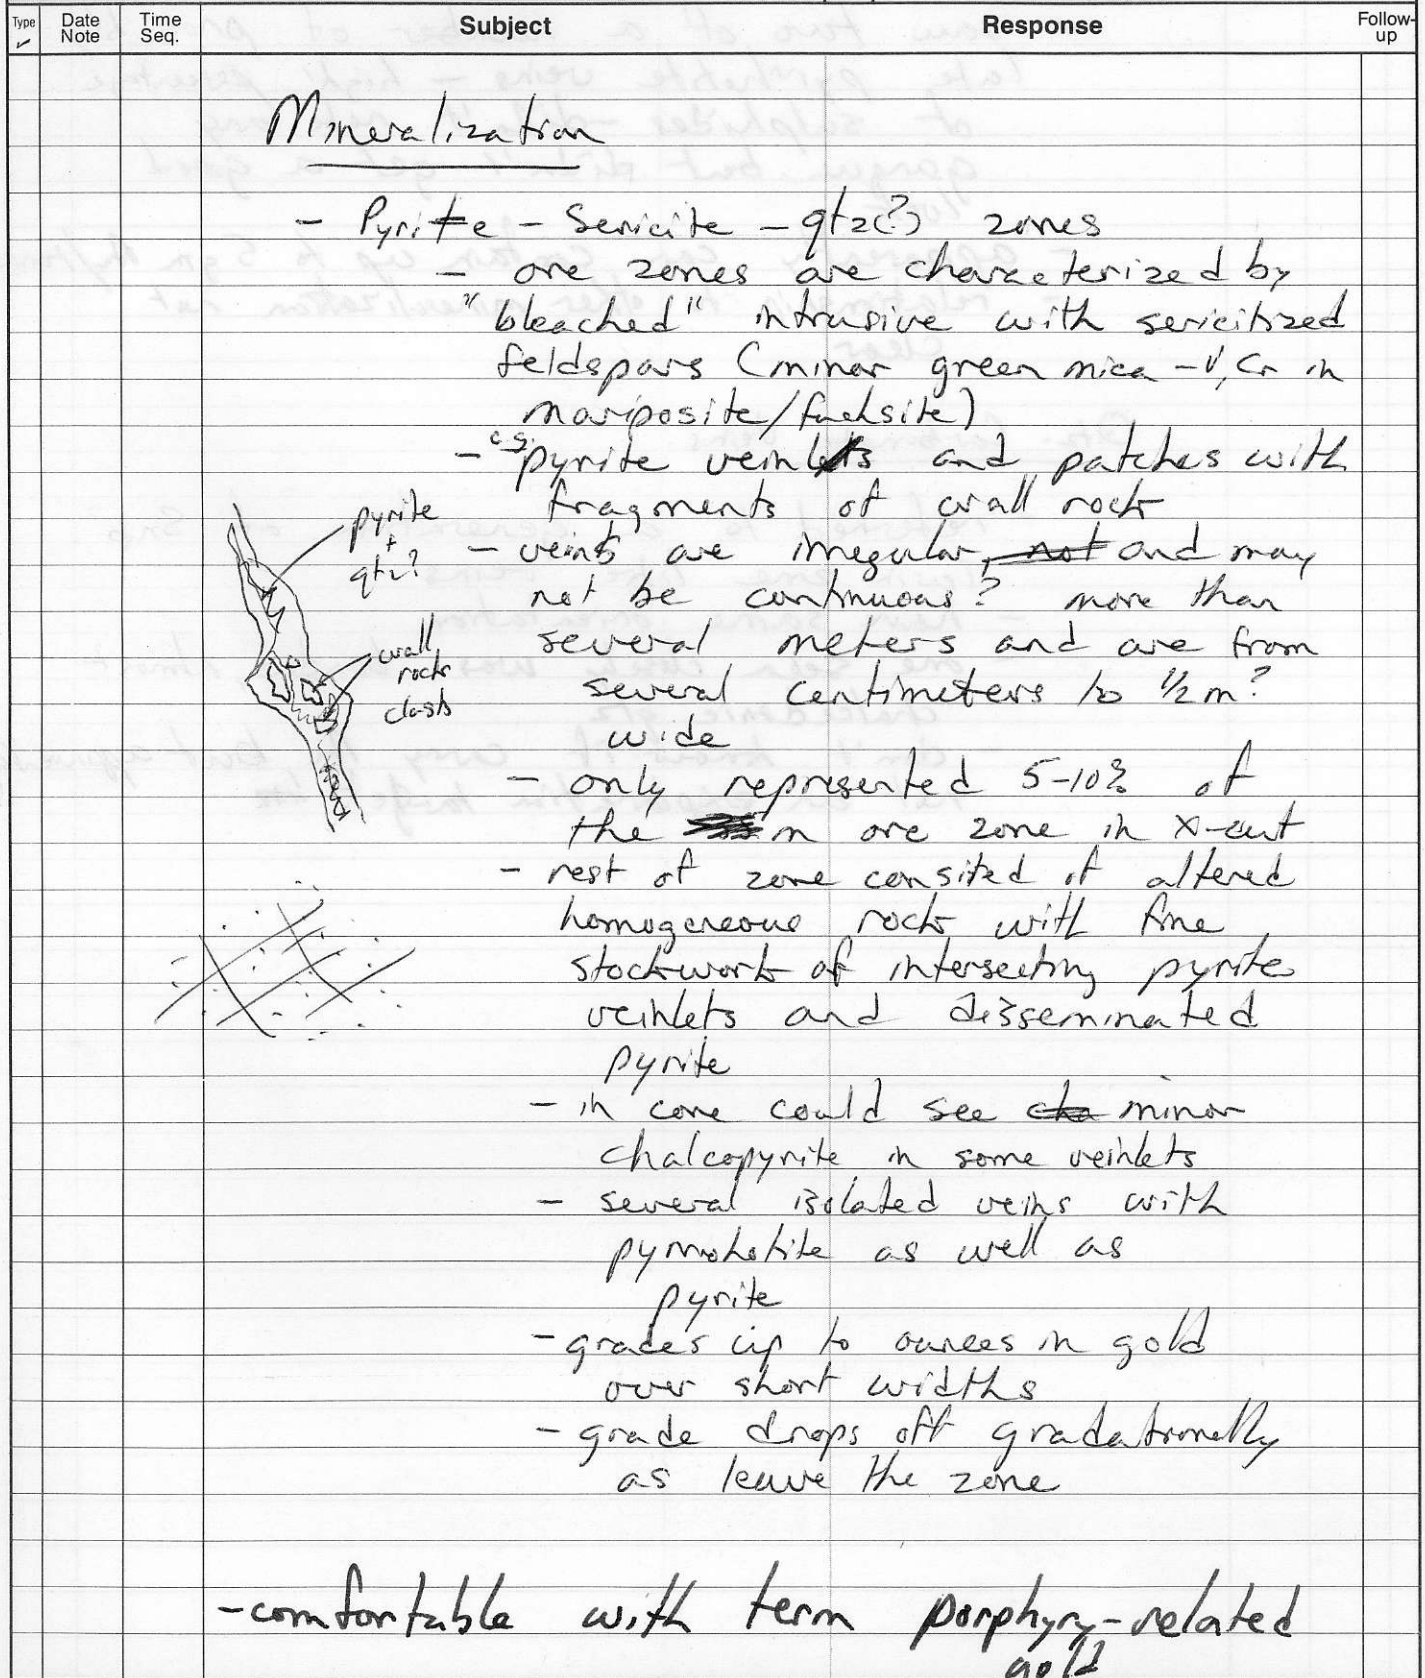 Type Date Note Time Seq. Subject Response Follow-up
Mineralization
- Pyrite - Sericite - qtz(?) zones
- ore zones are characterized by
"bleached" intrusive with sericitized
feldspars (minor green mica - V, Cr in
mariposite/fuchsite)
- c.g. pyrite veinlets and patches with
fragments of wall rock
- veins are irregular, not and may
not be continuous? more than
several meters and are from
several centimeters to 1/2 m?
wide
pyrite
+
qtz?
wall
rock
clasts
- only represented 5-10% of
the m ore zone in x-cut
- rest of zone consited of altered
homogeneous rock with fine
stockwork of intersecting pyrite
veinlets and disseminated
pyrite
- in core could see cha minor
chalcopyrite in some veinlets
- several isolated veins with
pyrrhotite as well as
pyrite
- grades up to ounces in gold
over short widths
- grade drops off gradationally
as leave the zone
- comfortable with term porphyry-related
gold